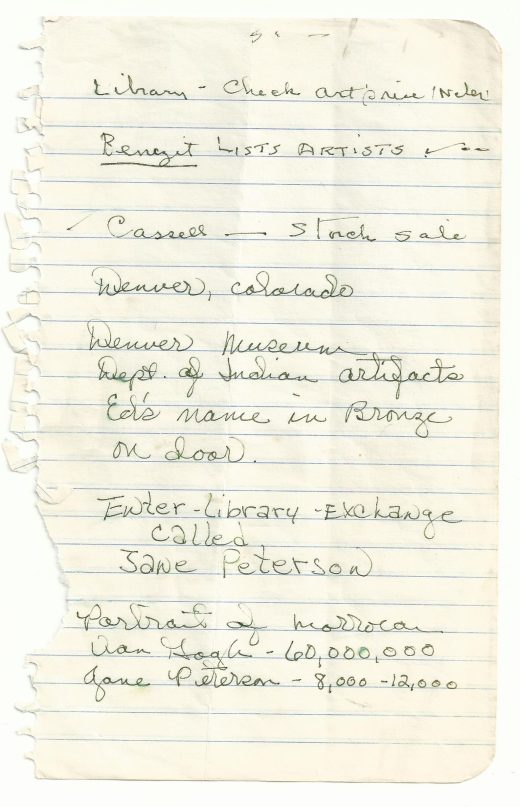 Library - Check art price index
Benezit LISTS ARTISTS
Cassell — Stock sale
Denver, Colorado
Denver Museum
Dept. of Indian artifacts
Ed's name in Bronze
on door.
Enter-Library-Exchange
Called
Jane Peterson
Portrait of Morrocan
Van Gogh - 60,000,000
Jane Peterson - 8,000 -12,000